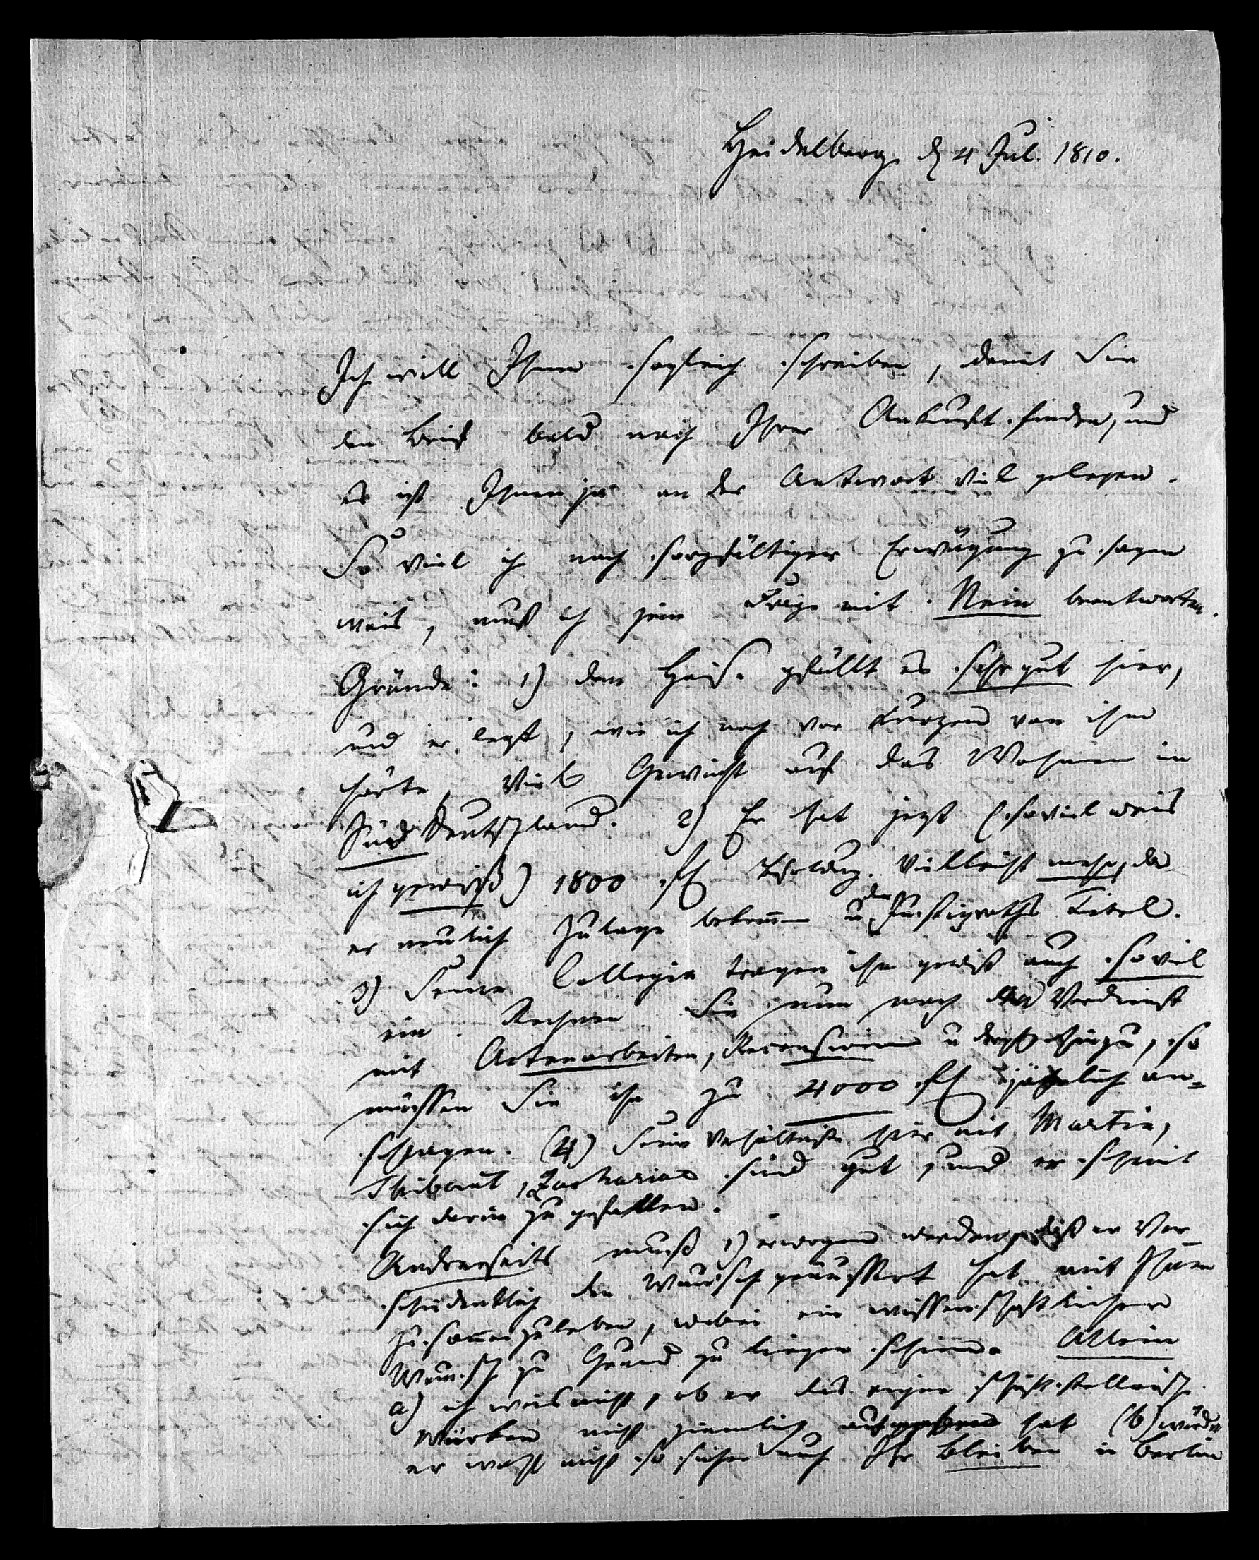 Heidelberg d 4 Jul. 1810.
Ich will Ihnen sogleich schreiben, damit Sie
den Brief bald nach Ihrer Ankunft finden, und
es ist Ihnen ja an der Antwort viel gelegen.
So viel ich nach sorgfältiger Erwägung zu sagen
weis, muß ich jene Frage mit Nein beantworten.
Gründe: 1) dem Heis. gefällt es sehr gut hier,
und er legt, wie ich noch vor Kurzem von ihm
hörte, viel Gewicht auf das Wohnen in
Süd Deutschland. 2) Er hat jezt (soviel weis
ich gewiß) 1800 fl Besoldg. vielleicht mehr, da
er neulich Zulage bekam u den Justizraths Titel.
3) Seine Collegia tragen ihm gewiß auch soviel
ein. Rechnen Sie nun noch den Verdienst
mit Actenarbeiten, Recensionen u dergl. hinzu, so
müssen Sie ihn zu 4000 fl jährlich an-
schlagen. (4) Seine Verhältniße hier mit Martin,
Thibaut, Zachariae sind gut, und er scheint
sich darin zu gefallen.
Andrerseits muß 1) erwogen werden, daß er Ver
schiedentlich den Wunsch geäussert hat mit Ihnen
zusammenzuleben, wobei ein wissenschaftlicher
Wunsch zu Grund zu liegen schien. Allein
a) ich weis nicht, ob er das eigne schriftstellerische
Würken nicht ziemlich aufgegeben hat (b) würde
er wohl nicht so sicher auf Ihr Bleiben in Berlin